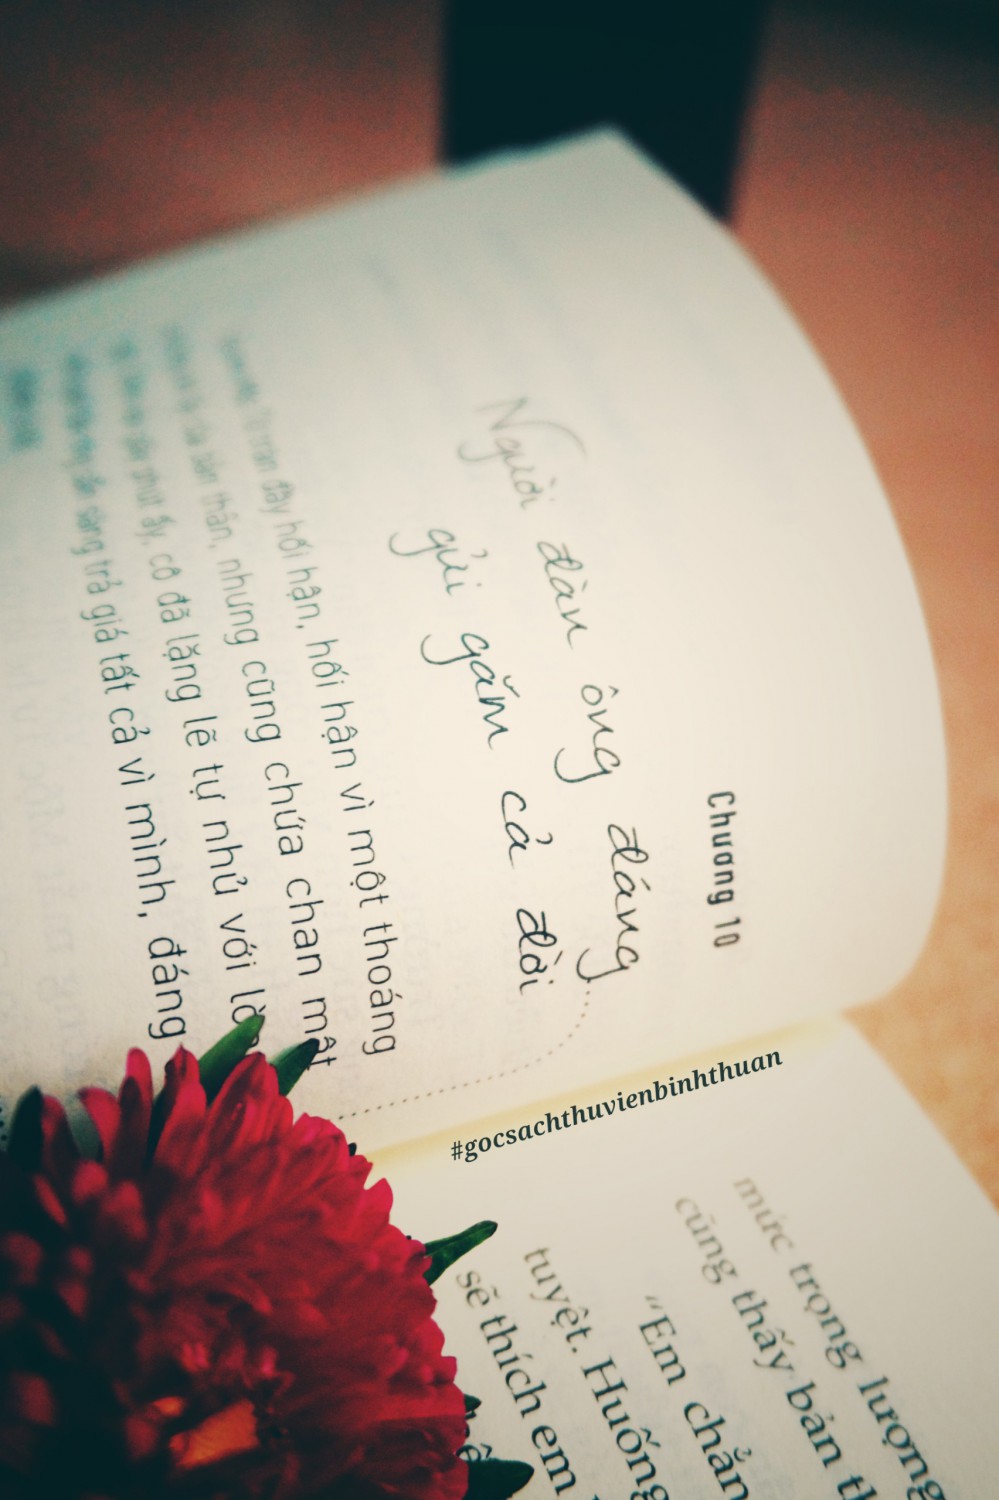 Chương 10
Người đàn ông đáng
gửi gắm cả đời
tràn đầy hối hận, hối hận vì một thoáng
của bản thân, nhưng cũng chứa chan mật
phút ấy, cô đã lặng lẽ tự nhủ với
sẵn sàng trả giá tất cả vì mình, đáng
#gocsachthuvienbinhthuan
mức trọng lượng
cũng thấy bản
“Em
tuyệt. Huống
sẽ thích em